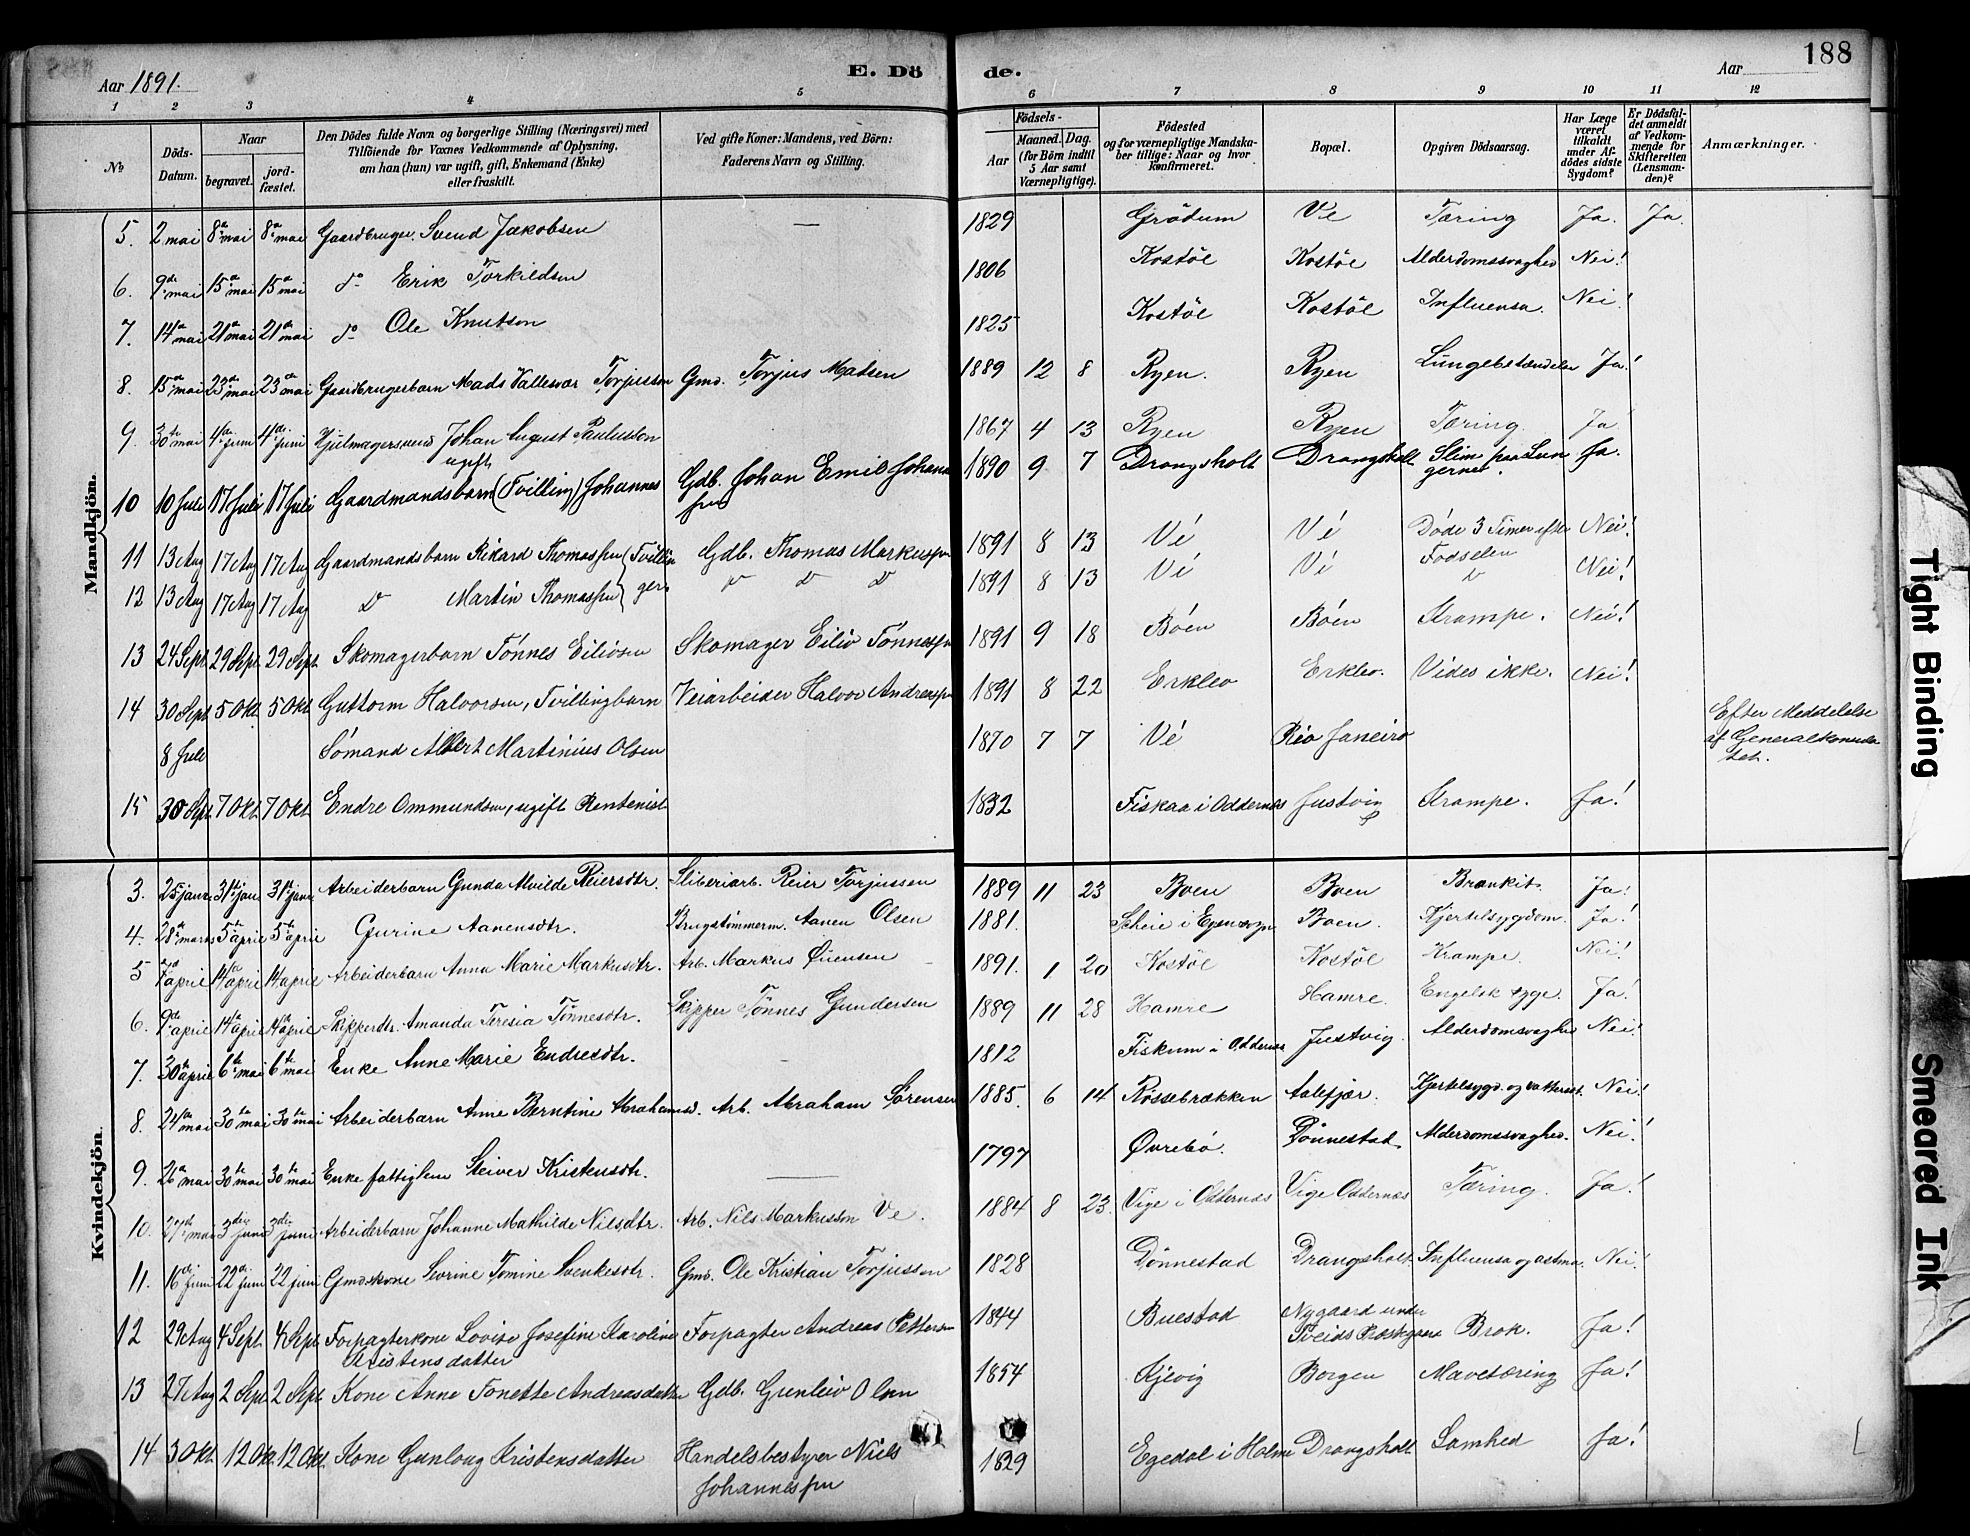 188
Aar 1891.
E. Dö de.
Aar
1 2 3 4 5 6 7 8 9 10 11 12
No.
Döds-Datum.
Naar
begravet.
jord-fæstet.
Den Dödes fulde Navn og borgerlige Stilling (Næringsvei) med
Tilföiende for Voxnes Vedkommende af Oplysning,
om han (hun) var ugift, gift, Enkemand (Enke)
eller fraskilt.
Ved gifte Koner: Mandens, ved Börn:
Faderens Navn og Stilling.
Födsels-
Aar
Maaned. Dag.
(for Börn indtil
5 Aar samt
Værnepligtige).
Födested
og for værnepligtige Mandska-
ber tillige: Naar og hvor
konfirmeret.
Bopæl.
Opgiven Dödsaarsag.
Har Læge
været
tilkaldt
under Af-
dödes sidste
Sygdom?
Er Dödsfal-
det anmeldt
af Vedkom-
mende for
Skifteretten
(Lensman-
den)?
Anmærkninger.
Mandkjön.
5. 2 mai 8de mai 8de mai Gaardbruger. Svend Jakobsen — 1829 Grödum Ve Tæring Ja. Ja.
6. 9de mai 15de mai 15de mai do Erik Torkildsen 1806 Kostöl Kostöl Alderdomssvaghed Nei!
7. 14de mai 21de mai 21de mai do Ole Knutson 1825 Kostöl Kostöl Influensa. Nei!
8. 15de mai 23de mai 23de mai Gaardbrugerbarn Mads Vallesvær Torjusson Gmd. Torjus Madsen 1889 12 8 Ryen. Ryen Lungebetændelse Ja!
9. 30te mai 4de juni 4de juni Hjulmagersvend Johan August Paulusson
ugift 1867 4 13 Ryen Ryen Tæring. Ja
10 10 Juli 17 Juli 17 Juli Gaardmandsbarn (Tvilling) Johannes Gdb. Johan Emil Johan
sen 1890 9 7 Drangsholt Drangsholt Slim paa Lun
gerne. Ja.
11 13 Aug 17 Aug 17 Aug Gaardmandsbarn Rikard Thomassen (Tvillin Gdb. Thomas Markussen 1891 8 13 Vé Vé Döde 3 Timer efter
Fødselen Nei!
12 13 Aug 17 Aug 17 Aug D Martin Thomassen ger D D D 1891 8 13 Vé Vé D Nei!
13 24 Sept. 29 Sept. 29 Sept. Skomagerbarn Tönnes Eilivsen Skomager Eiliv Tönnessen 1891 9 18 Böen Böen Krampe. Nei!
14 30 Sept 5 Okt. 5 Okt Guttorm Halvorsen, Tvillingbarn Veiarbeider Halvor Andreassen 1891 8 22 Erklev Erklev. Vides ikke. Nei!
8 Juli Sömand Albert Martinius Olsen 1870 7 7 Vé Rio Janeiro Efter Meddelelse
af Generalkonsula
tet.
15 30 Sept. 7 Okt. 7 Okt Endre Ommundsen, ugift Rentenist 1832 Fiskaa i Oddernes Justvig Krampe. Ja!
Kvindekjön.
3. 25 janr 31te jan 31te janr Arbeiderbarn Gunda Alvilde Reiersdtr. Sliberiarb. Reier Torjussen 1889 11 23 Boen Boen Bronkit. Ja!
4. 28de marts 5te april 5te april Gurine Aanensdtr. Brugstömmerm. Aanen Olsen 1881. Scheie i Boen. Kjertelsygdom. Ja!
5 april 14de april 14 april Arbeiderbarn Anna Marie Markusdtr. Arb. Markus 1891. 1 20 Kostöl Kostöl Krampe. Nei!
6. 9de april 14de april 14de april Skipperdtr. Amanda Teresia Tönnesdtr. Skipper Tönnes Gundersen 1889 11 28 Hamre Hamre Engelsk syge. Ja!
7. 30te april 6te mai 6te mai Enke Anne Marie Endresdtr. 1812 Fiskum i Oddernes Justvig. Alderdomsvaghed Nei!
8. 24de mai 30te mai 30te mai Arbeiderbarn Anne Berntine Abrahamsd. Arb. Abraham Sörensen 1885. 6 14 Rossebrækken Aalefjær. Kjertelsygd. og vattersot. Nei!
9. 26de mai 30te mai 30te mai Enke fattiglem Steiver Kristensdtr. — 1797 Övrebö. Dönnestad Alderdomssvaghed. Nei!
10. 27de mai 3die juni 3die juni Arbeiderbarn Johanne Mathilde Nilsdtr. Arb. Nils Markusson Ve. 1884 8 23. Vige i Oddernæs Vige Oddernæs Tæring. Ja!
11. 16de juni 22de juni 22 juni Gmdskone Sevrine Tomine Svenkesdtr. Gmd. Ole Kristian Torjussen 1828 Dönnestad Drangsholt Influensa og astma. Nei!
12 29 Aug 4 Sept. 4 Sept. Forpagterkone Lovise Josefine Karoline
Kristensdatter Forpagter Andreas Pettersen 1844 Buestad Nygaard under
Tveids Brok. Ja!
13 27 Aug 2 Sept 2 Sept Kone Anne Tonette Andreasdatter Gdb. Gunleiv Olsen 1854 Kjevig Borgen Mavetæring Ja!
14 3 Okt. 12 Okt. 12 Okt. Kone Gunloug Kristensdatter Handelsbestyrer Niels
Johannessen 1829 Egedal i Holme Drangsholt Lamhed Ja!
Tight Binding
Smeared Ink